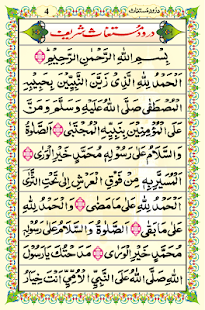 4 درود مستغاث
درود مستغاث شریف
بِسْمِ اللهِ الرَّحْمٰنِ الرَّحِيْمِ
اَلْحَمْدُ لِلّٰهِ الَّذِیْ زَيَّنَ النَّبِيِّيْنَ بِحَبِيْبِهِ
الْمُصْطَفٰى صَلَّى اللهُ عَلَيْهِ وَسَلَّمَ وَمَنَّ
عَلَى الْمُؤْمِنِيْنَ بِنَبِيِّهِ الْمُجْتَبٰى الصَّلٰوةُ
وَالسَّلَامُ عَلٰى رَسُوْلِهٖ مُحَمَّدٍ خَيْرِ الْوَرٰى
الْمَسِيْرِ بِهٖ مِنْ فَوْقِ الْعَرْشِ اِلٰى تَحْتِ الثَّرٰى
اَلْحَمْدُ لِلّٰهِ عَلٰى مَا مَضٰى وَالْحَمْدُ لِلّٰهِ
عَلٰى مَا بَقٰى اَلصَّلٰوةُ وَالسَّلَامُ عَلٰى رَسُوْلِهٖ
مُحَمَّدٍ خَيْرِ الْوَرٰى مَدَحْتُكَ يَا رَسُوْلَ
اللهِ صَلَّى اللهُ عَلَى النَّبِيِّ الْاُمِّيِّ اَنْتَ خِيَارُ